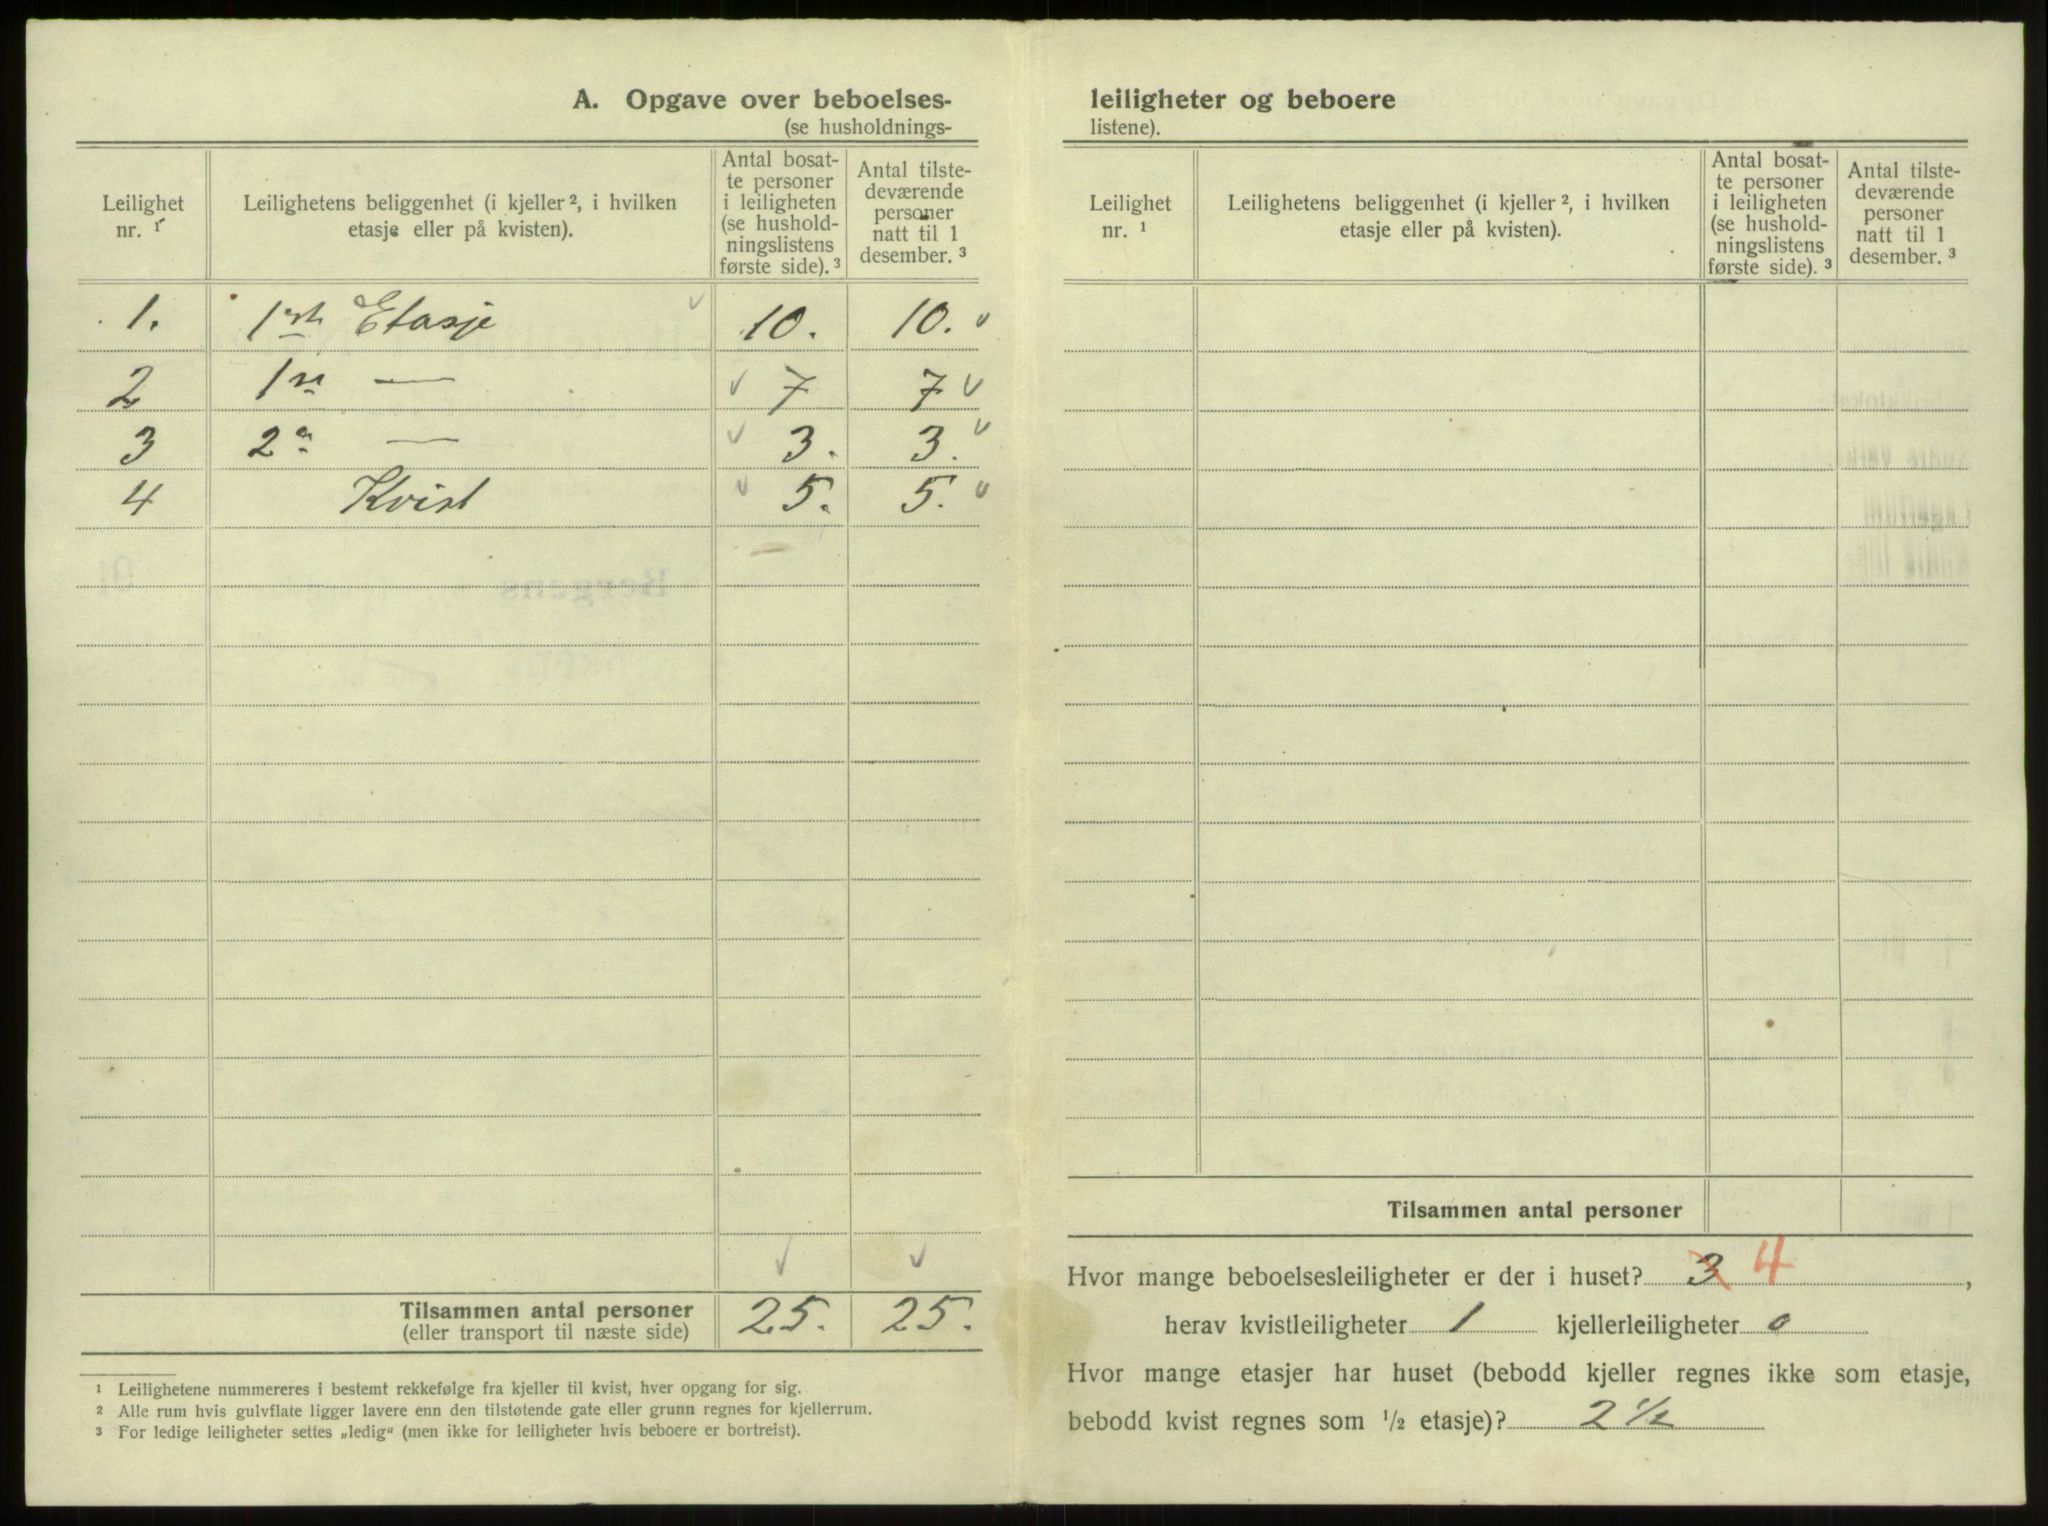 A. Opgave over beboelses-
(se husholdnings-
Leilighet nr. 1
Leilighetens beliggenhet (i kjeller ², i hvilken etasje eller på kvisten).
Antal bosatte personer i leiligheten (se husholdningslistens første side). ³
Antal tilstedeværende personer natt til 1 desember. ³
1. 1ste Etasje 10. 10.
2 1ste — 7 7
3 2n — 3. 3.
4 Kvist 5. 5.
Tilsammen antal personer 25. 25.
(eller transport til næste side)
¹ Leilighetene nummereres i bestemt rekkefølge fra kjeller til kvist, hver opgang for sig.
² Alle rum hvis gulvflate ligger lavere enn den tilstøtende gate eller grunn regnes for kjellerrum.
³ For ledige leiligheter settes „ledig“ (men ikke for leiligheter hvis beboere er bortreist).
leiligheter og beboere
listene).
Leilighet nr. ¹
Leilighetens beliggenhet (i kjeller ², i hvilken etasje eller på kvisten).
Antal bosatte personer i leiligheten (se husholdningslistens første side). ³
Antal tilstedeværende personer natt til 1 desember. ³
Tilsammen antal personer
Hvor mange beboelsesleiligheter er der i huset? 3 4,
herav kvistleiligheter 1 kjellerleiligheter 0
Hvor mange etasjer har huset (bebodd kjeller regnes ikke som etasje,
bebodd kvist regnes som ½ etasje)? 2 ½